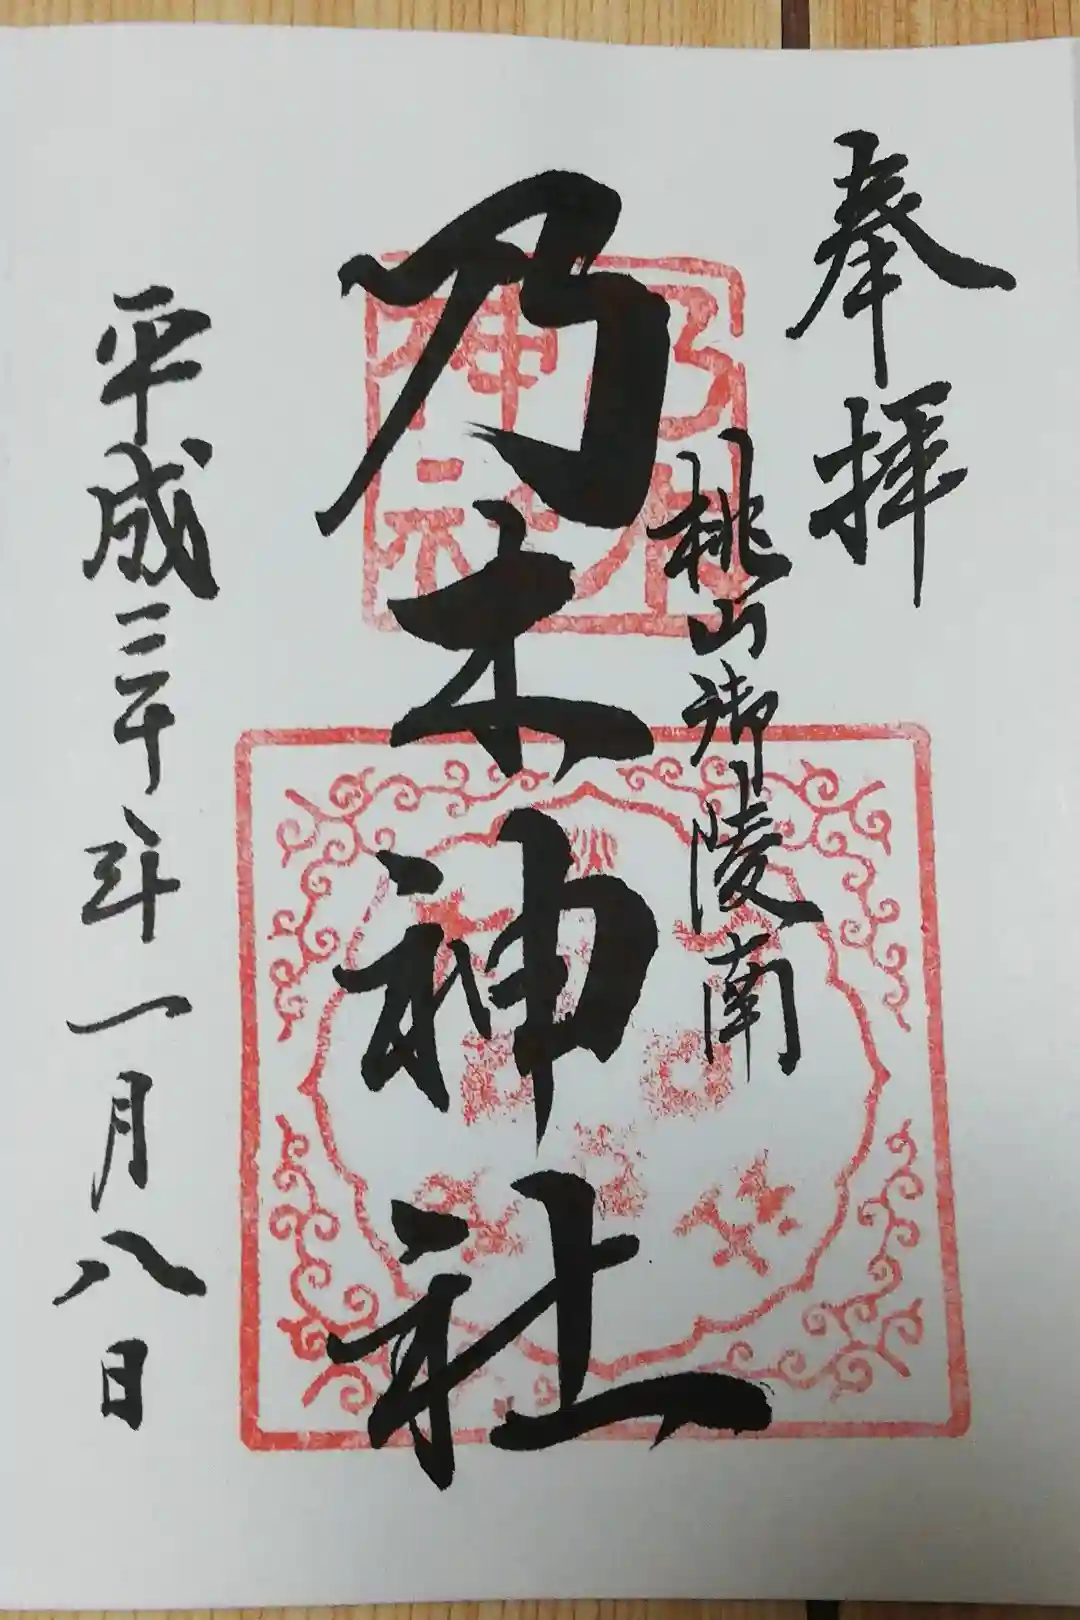 奉拝
桃山御陵南
乃木神社
乃木神社
平成三十年一月八日